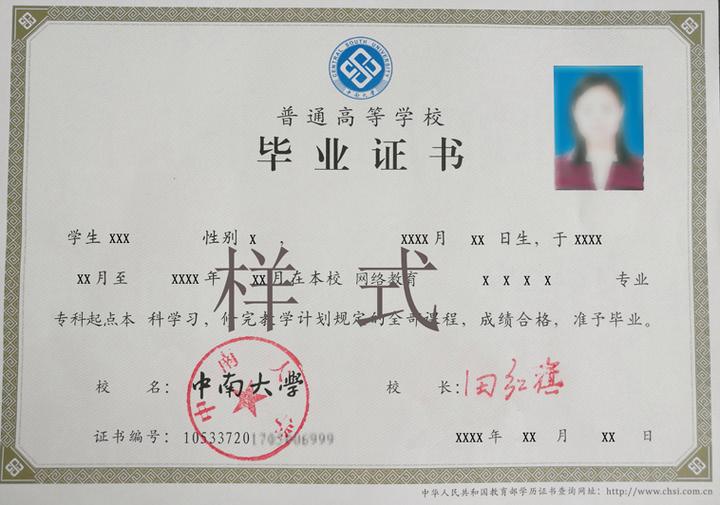 CENTRAL SOUTH UNIVERSITY
中南大学
普通高等学校
毕业证书
学生 xxx 性别 x , xxxx月 xx 日生，于 xxxx
xx 月至 xxxx 年 xx月在本校 网络教育 x x x x 专业
样式
专科起点本 科学习，修完教学计划规定的全部课程，成绩合格，准予毕业。
校 名： 中南大学 校 长： 田红旗
中南大学
证书编号： 10533720 xxxx 年 xx 月 xx 日
中华人民共和国教育部学历证书查询网址：http://www.chsi.com.cn